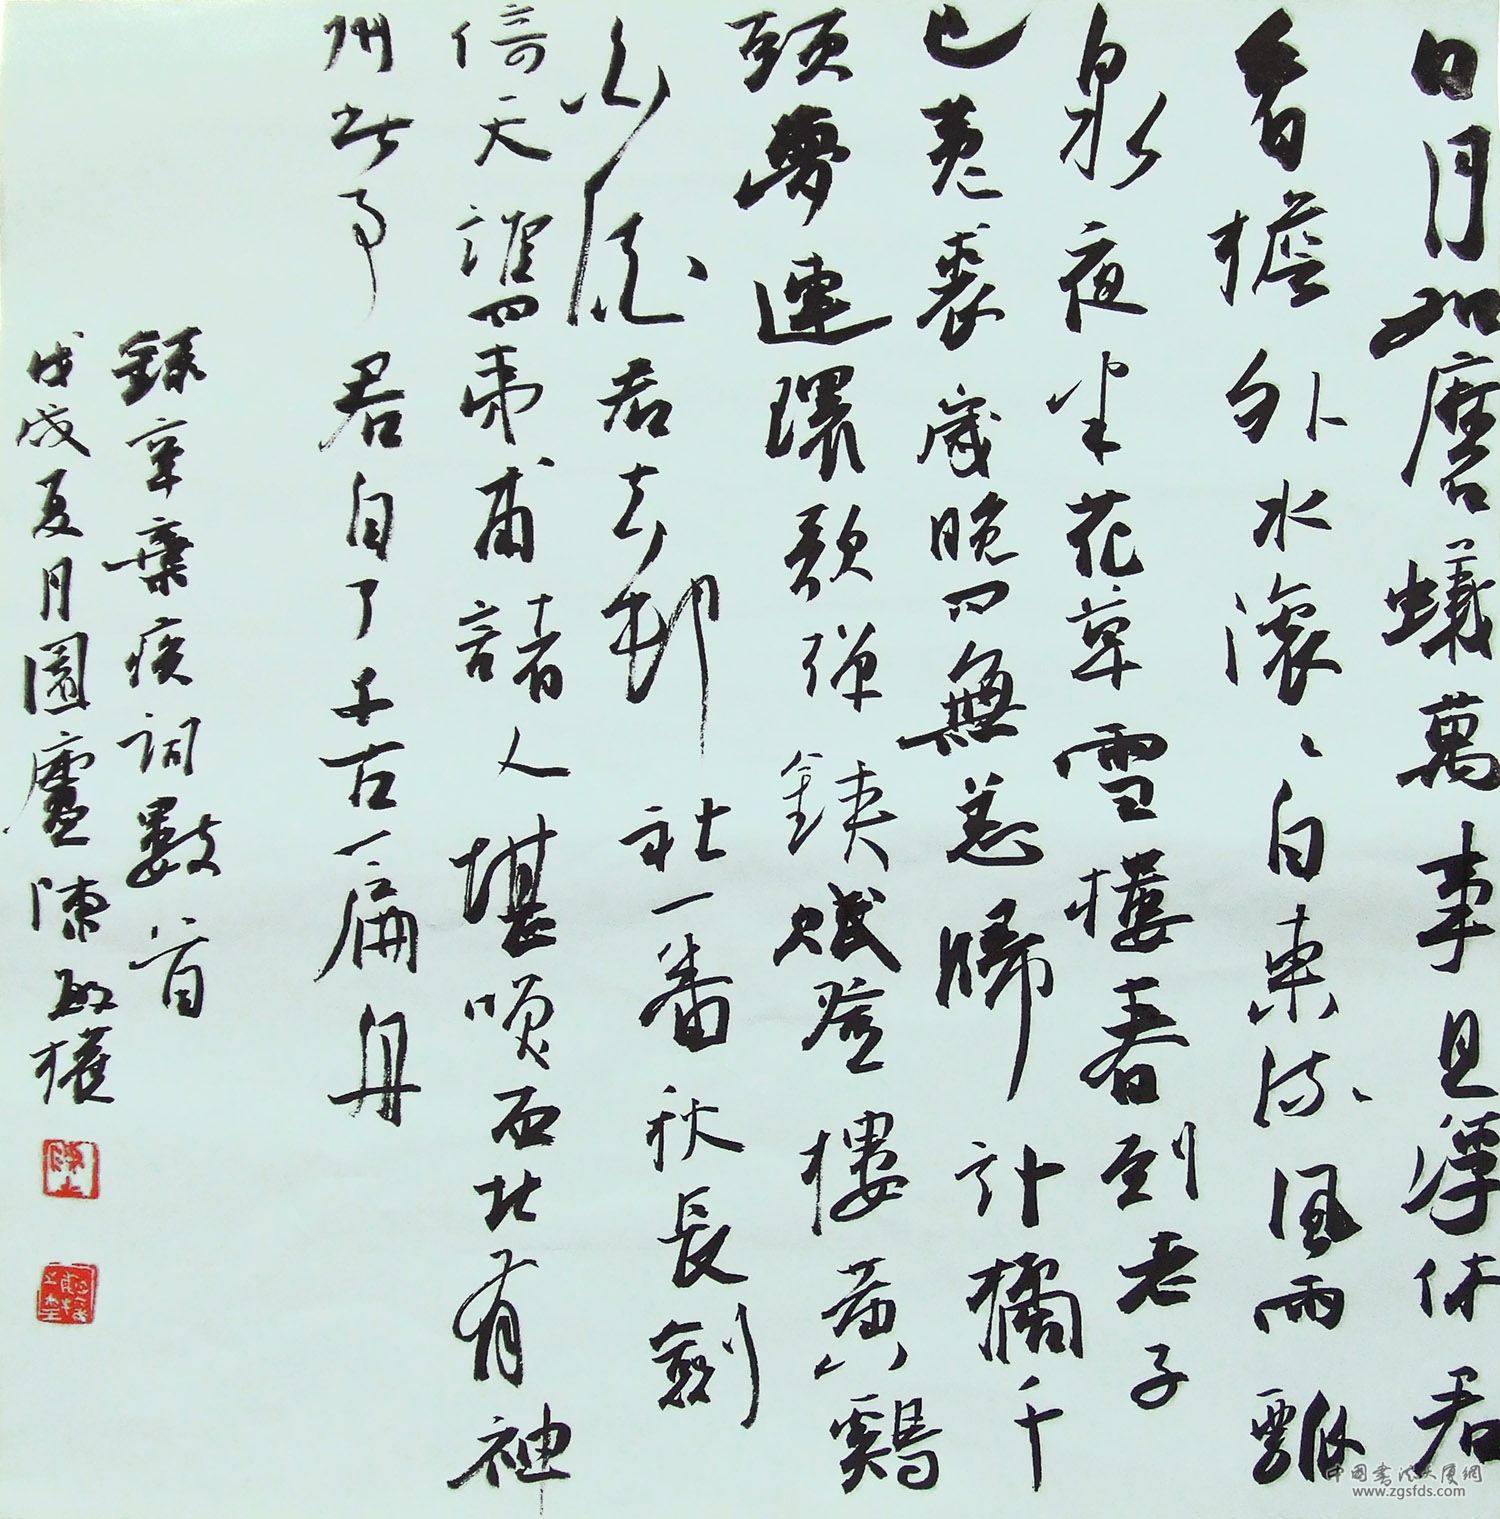 日月如磨蟻萬事且浮休君
看檐外水滚〻自東流風雨瓢
泉夜半花草雪樓春到老子
已菟裘歲晚問無恙歸計橘千
頭夢連環歌彈鋏賦登樓黃鷄
白酒君去村社一番秋長劍
倚天誰問夷甫諸人堪笑西北有神
州此事君自了千古一扁舟
錄辛棄疾詞數首
戊戌夏月圓廬陳敏權
中国書法大厦網
www.zgsfds.com